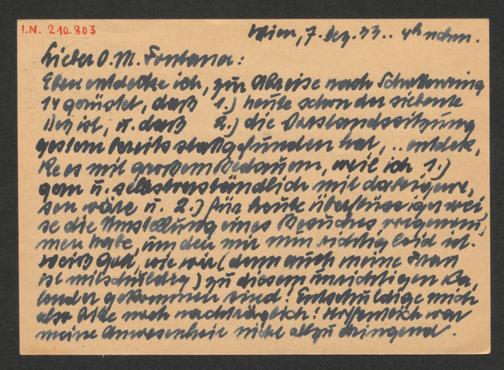 I.N. 210.803
Wien, 7. Dez. 33.. 4h nchm.
Lieber O. M. Fontana:
Eben entdecke ich, zur Abreise nach
14 gerüstet, daß 1.) heute schon der siebente
Dez ist, u. daß 2.) die Vorstandssitzung
gestern bereits stattgefunden hat, .. entdek,
ke es mit großem Bedauern, weil ich 1.)
gern u. selbstverständlich mit dabeigewe,
sen wäre u. 2.) für heute überflüssigerwei
se die Umstellung eines Besuches vorgenom,
men habe, um den mir nun richtig leid ist.
Weiß Gott, wie wir (denn auch meine Frau
ist mitschuldig) zu diesem unrichtigen Ka,
lender gekommen sind! Entschuldige mich
also bitte noch nachträglich! Hoffentlich war
meine Anwesenheit nicht allzu dringend.